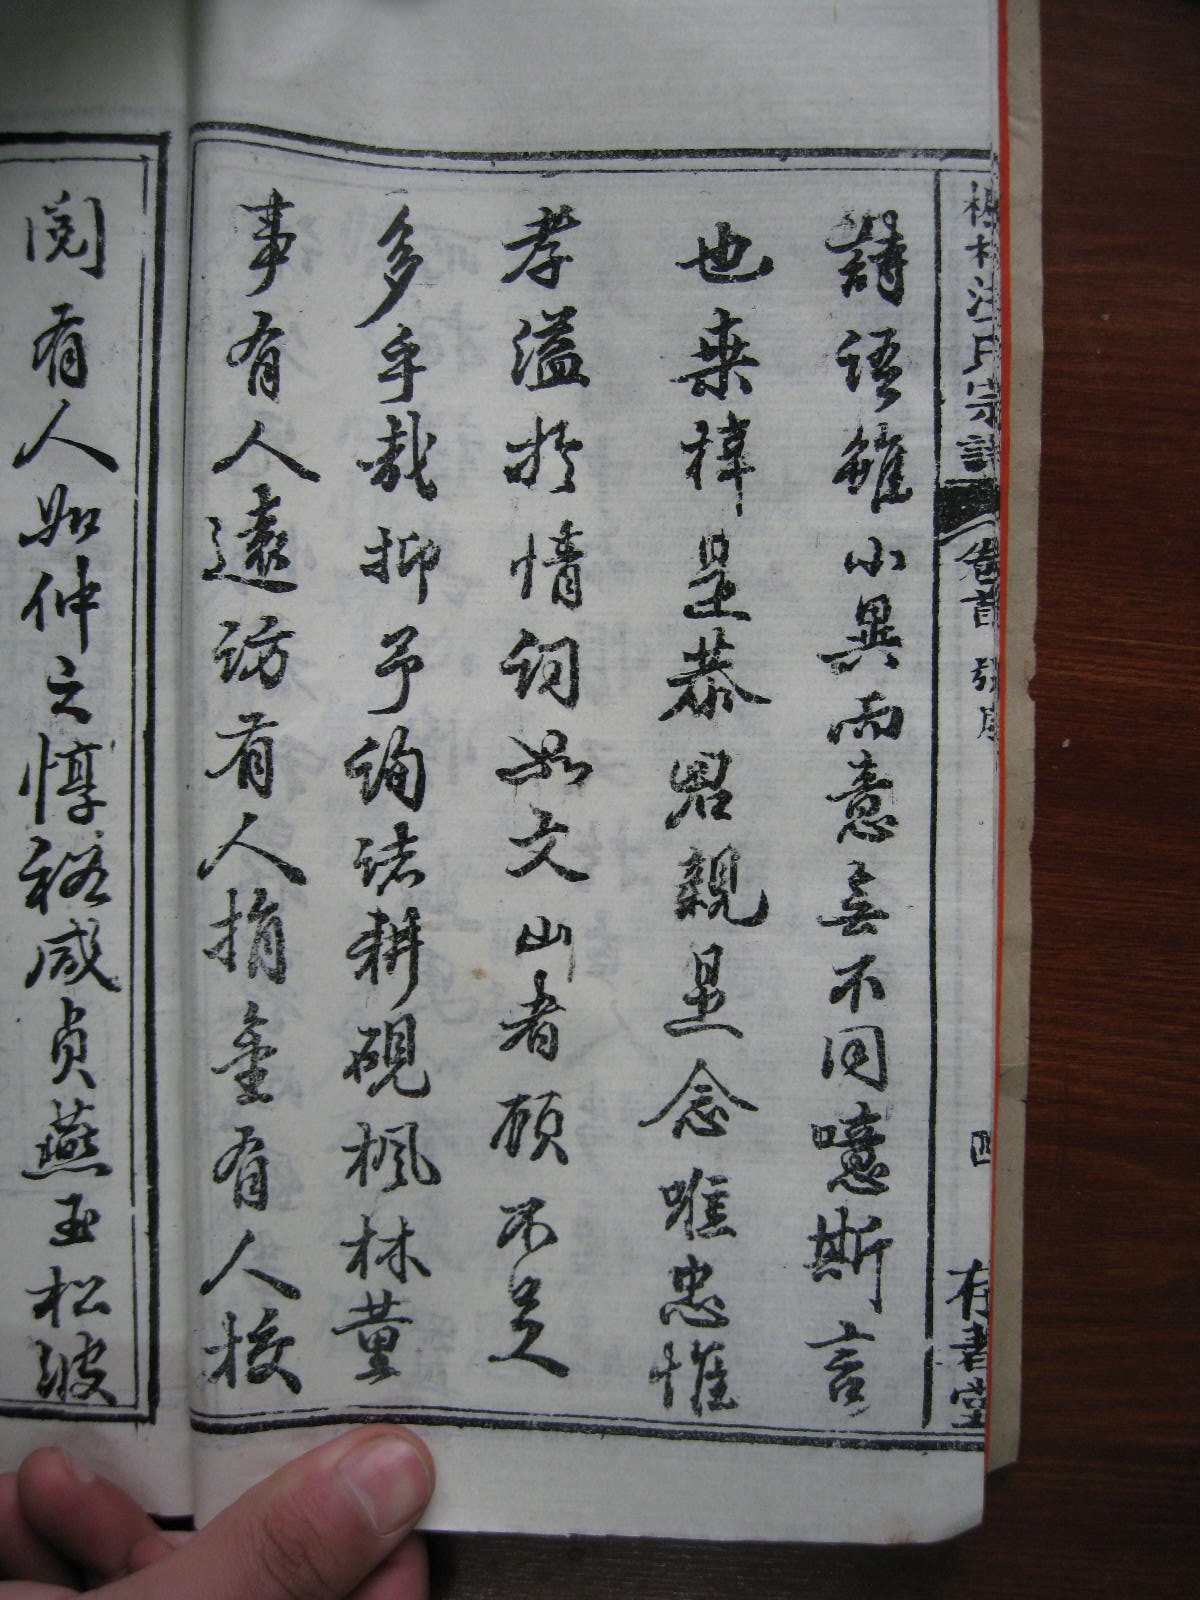 楓林汪氏宗譜 卷首 張序 四 存著堂
詩語雖小異而意無不同噫斯言
也桑梓是恭君親是念唯忠惟
孝溢於情詞如文山者顧不足
多乎哉抑予詢諸耕硯楓林董
事有人遠訪有人捐金有人校
閱有人如仲之惇裕咸貞燕玉松波